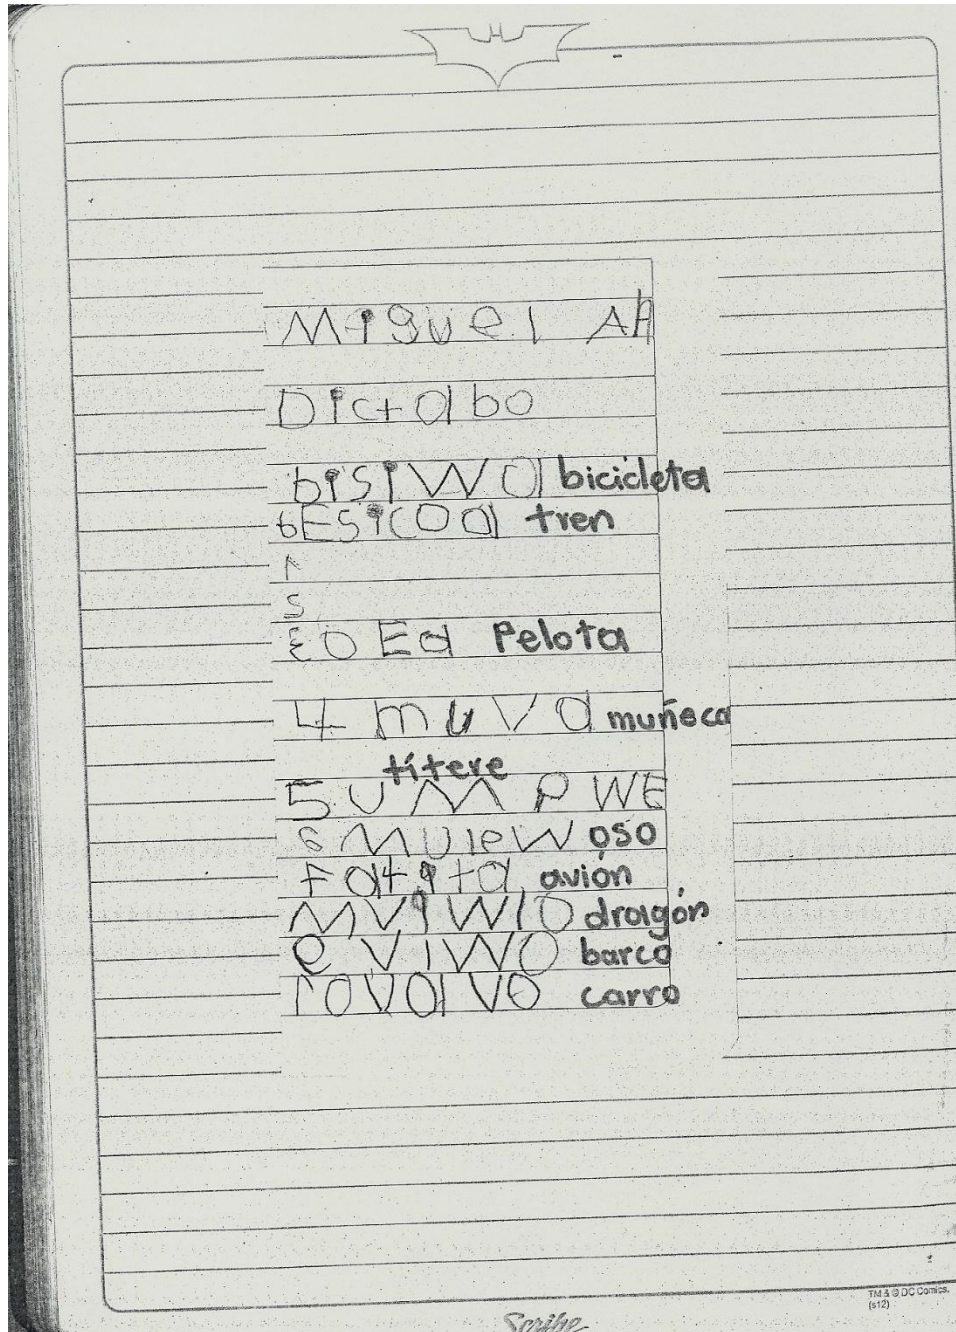 Miguel AA
Dictabo
bisiWa bicicleta
tESicoa tren
1
S
E O Ea Pelota
4 muVa muñeca
títere
5 U M P WE
6 MUleW oso
Fatita avión
MViWIO dragón
e ViWO barco
roVaIVO carro
TM & © DC Comics.
(s12)
Scribe